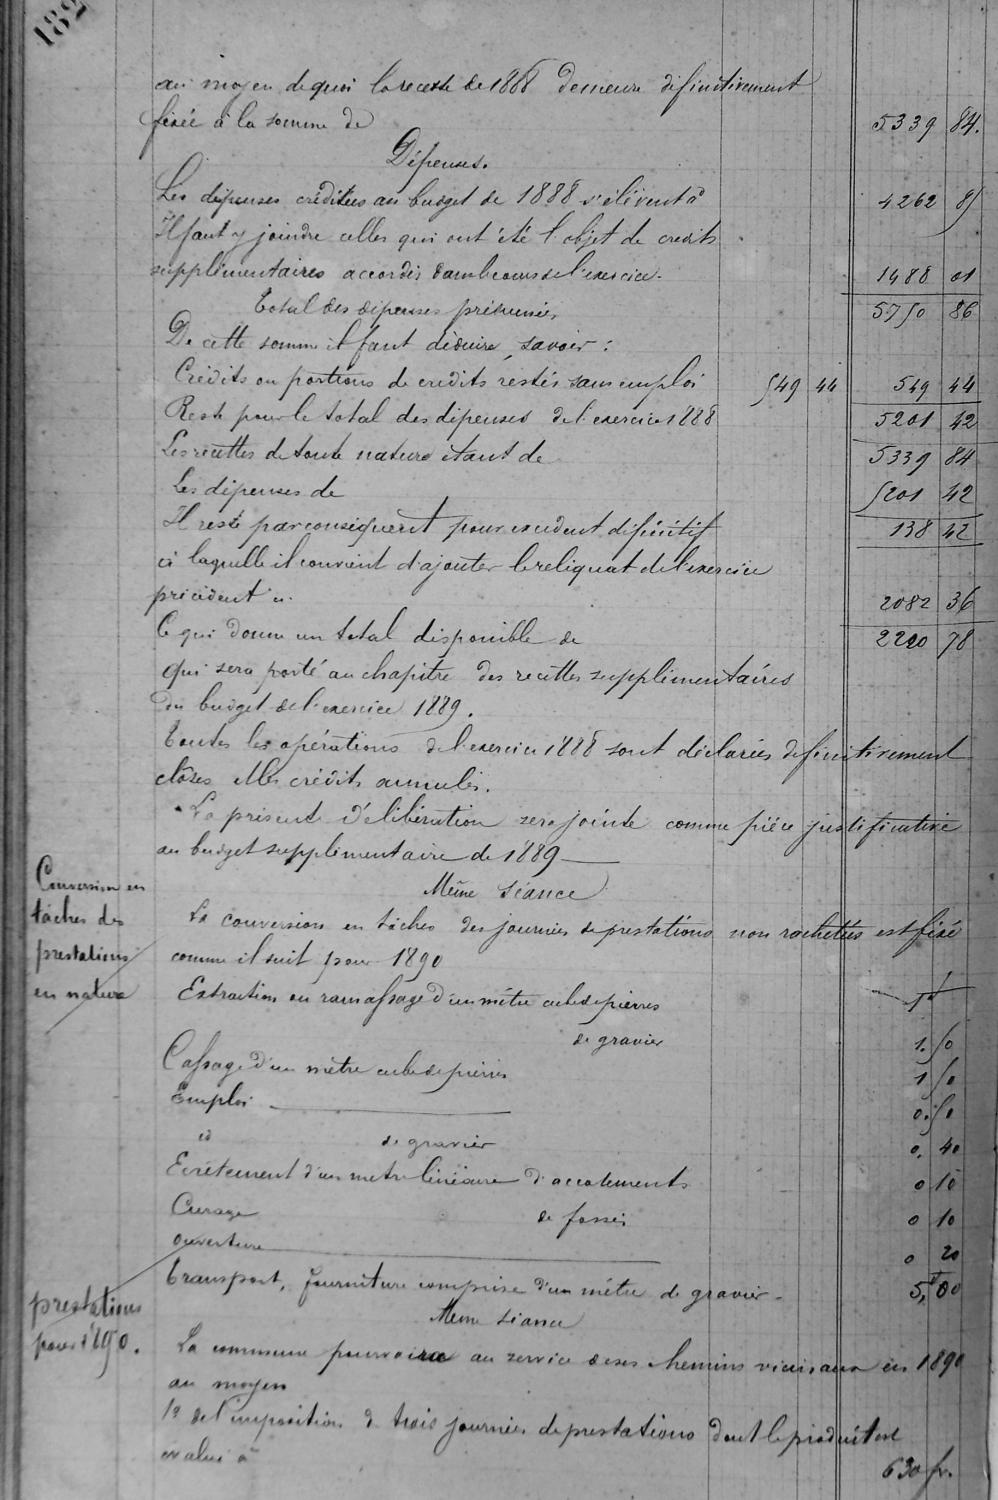 182
au moyen de quoi la recette de 1888 demeure définitivement
fixée à la somme de 5339 84.
Dépenses.
Les dépenses créditées au budget de 1888 s'élèvent à 4262 85
Il faut y joindre celles qui ont été l'objet de crédits
supplémentaires accordés dans le cours de l'exercice. 1488 01
Total des dépenses présumées 5750 86
De cette somme il faut déduire, savoir :
Crédits ou portions de crédits restés sans emploi 549 44 549 44
Reste pour le total des dépenses de l'exercice 1888 5201 42
Les recettes de toute nature étant de 5339 84
Les dépenses de 5201 42
Il reste par conséquent pour excédent définitif 138 42
à laquelle il convient d'ajouter le reliquat de l'exercice
précédent 2082 36
Ce qui donne un total disponible de 2220 78
qui sera porté au chapitre des recettes supplémentaires
du budget de l'exercice 1889.
Toutes les opérations de l'exercice 1888 sont déclarées définitivement
closes et les crédits annulés.
La présente délibération sera jointe comme pièce justificative
au budget supplémentaire de 1889
Même séance
Conversion en
tâches des
prestations
en nature
La conversion en tâches des journées de prestations non rachetées est fixé
comme il suit pour 1890
Extraction ou ramassage d'un mètre cube de pierres 1f
de gravier 1.50
Cassage d'un mètre cube de pierres 1 50
Emploi 0.50
id de gravier 0.40
Ecrêtement d'un mètre linéaire d'accotements 0 10
Curage de fossés 0 10
Ouverture 0 20
Transport, fourniture comprise d'un mètre de gravier 5,f00
Meme séance
prestations
pour 1890.
La commune pourvoira au service de ses chemins vicinaux en 1890
au moyen
1º de l'imposition de trois journées de prestations dont le produit est
évalué à 630 fr.